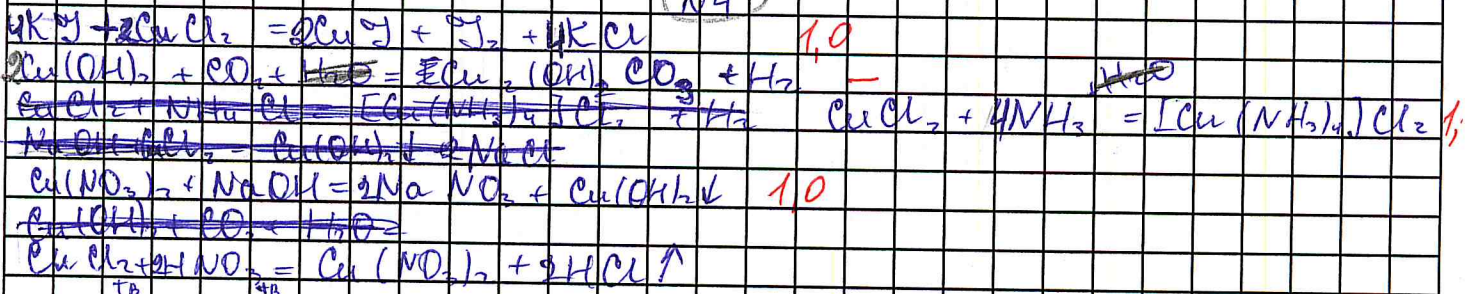 №4
4KJ + 2CuCl₂ = 2CuJ + J₂ + 4KCl 1,0
2Cu(OH)₂ + CO₂ + H₂O = Cu₂(OH)₂CO₃ + H₂ — H₂O
CuCl₂ + NH₄Cl = [Cu(NH₃)₄]Cl₂ + H₂ CuCl₂ + 4NH₃ = [Cu(NH₃)₄]Cl₂ 1,
NaOH + CuCl₂ = Cu(OH)₂↓ + 2NaCl
Cu(NO₃)₂ + NaOH = 2NaNO₃ + Cu(OH)₂↓ 1,0
Cu(OH)₂ + CO₂ + H₂O =
CuCl₂ + 2HNO₃ = Cu(NO₃)₂ + 2HCl↑
тв